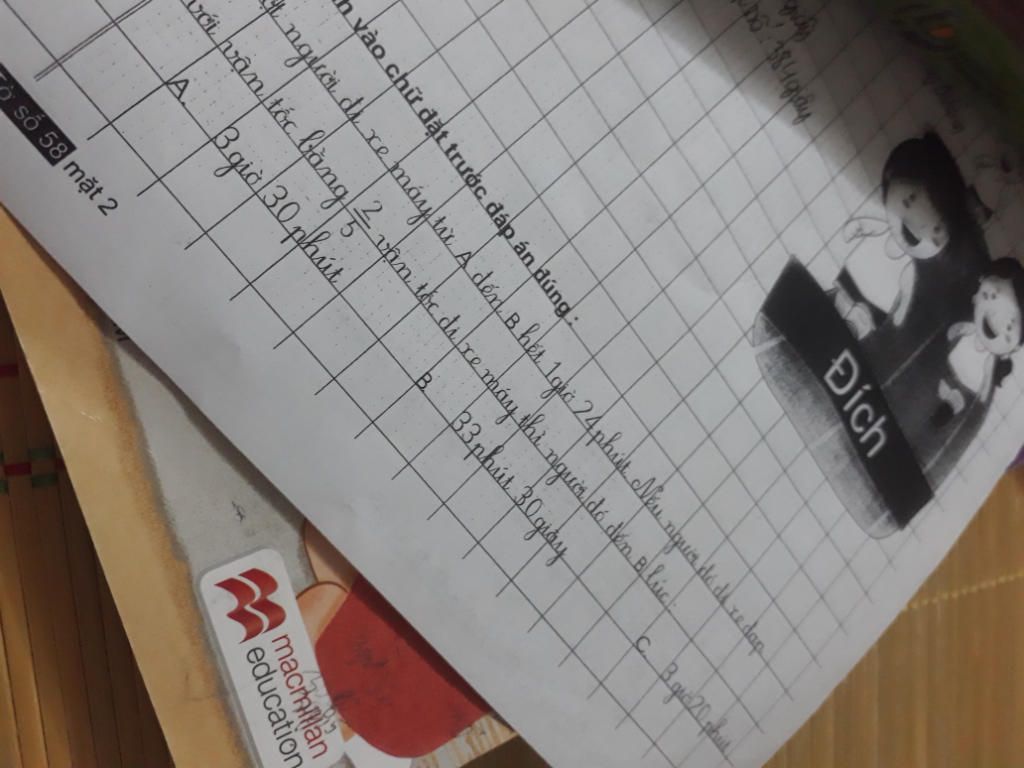 384 giây
Đích
vào chữ đặt trước đáp án đúng:
người đi xe máy từ A đến B hết 1 giờ 24 phút. Nếu người đó đi xe đạp
với vân tốc bằng 2/5 vân tốc đi xe máy thì người đó đến B lúc:
A. 3 giờ 30 phút B. 33 phút 30 giây C. 3 giờ 20 phút
số 58 mặt 2
macmillan
education